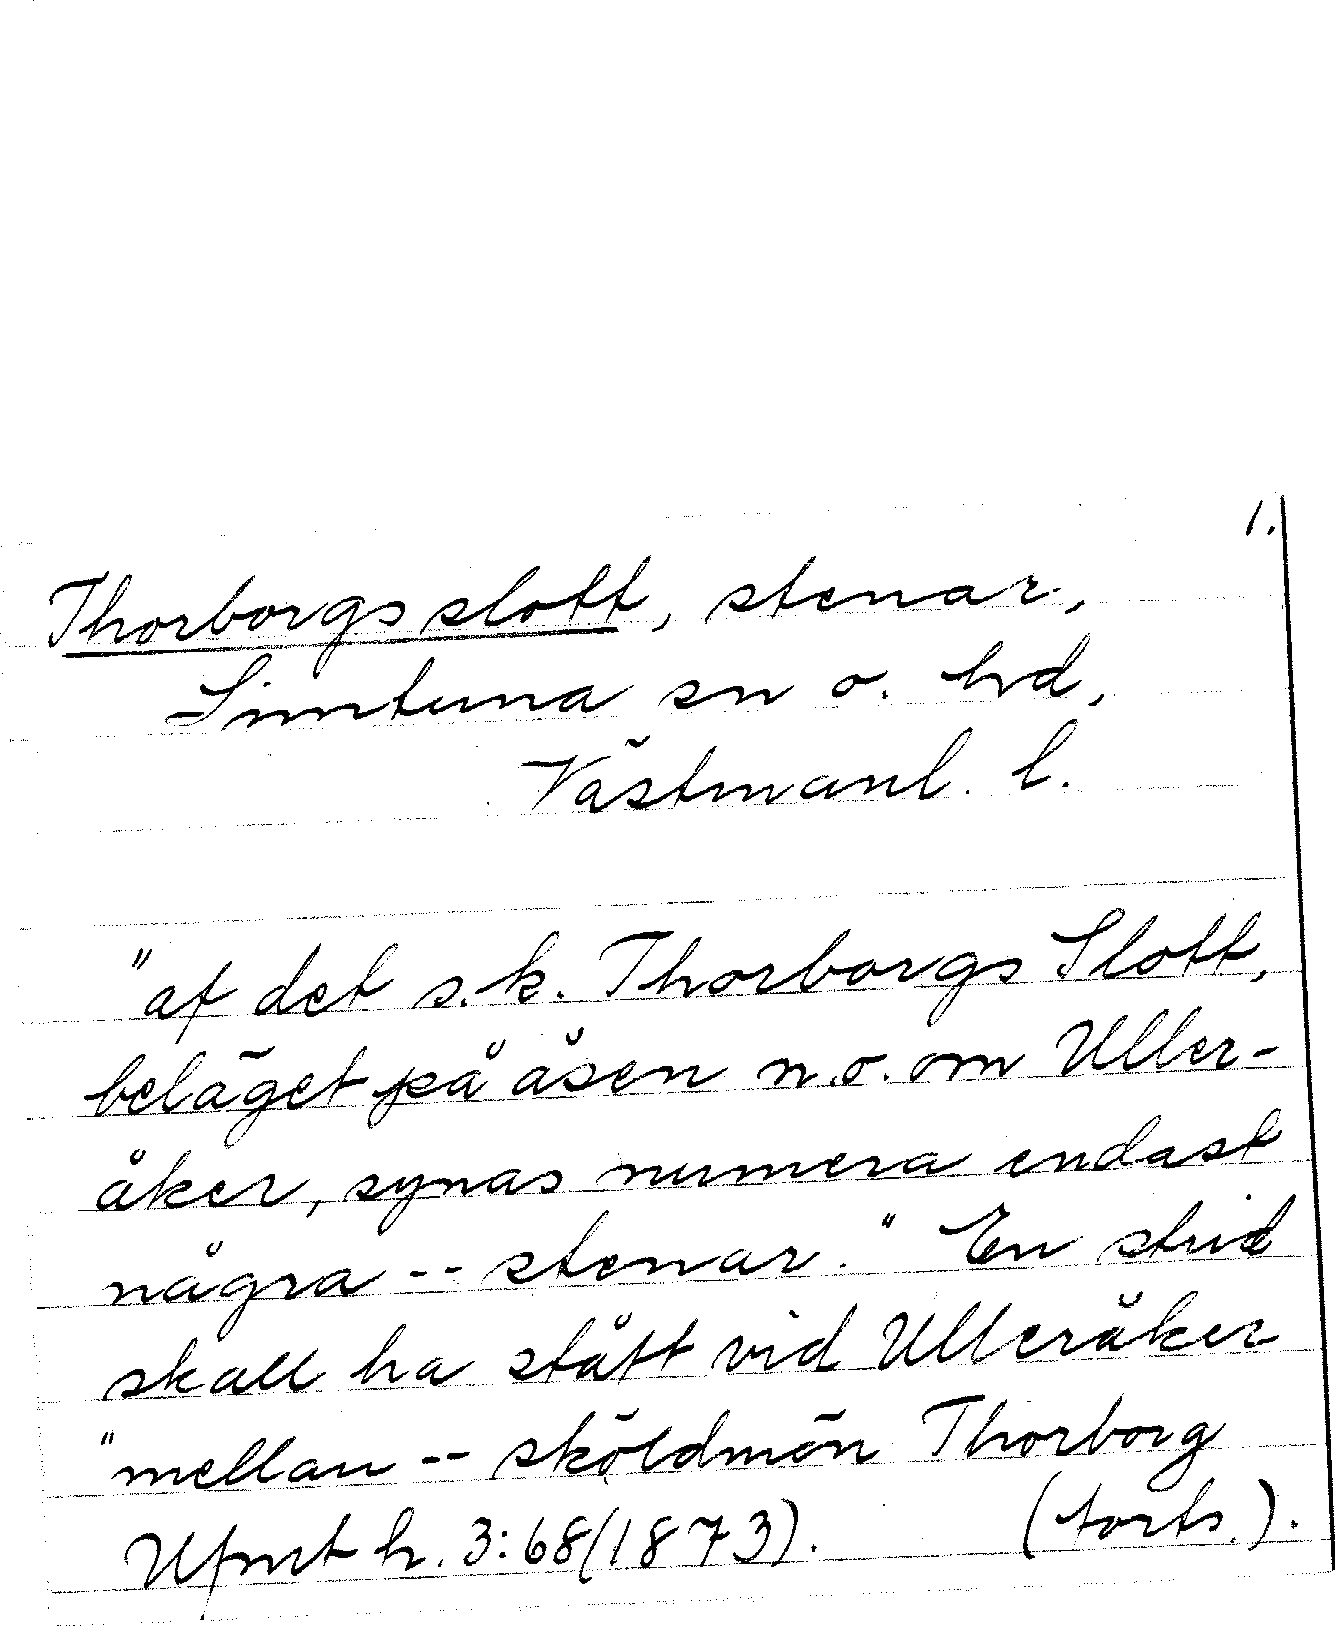 1.
Thorborgs slott, stenar,
Simtuna sn o. hd,
Västmanl. l.
"af det s.k. Thorborgs Slott,
beläget på åsen n.o. om Uller-
åker, synas numera endast
några -- stenar." En strid
skall ha stått vid Ulleråker
"mellan -- sköldmön Thorborg
Ufmt h. 3:68(1873). (forts.).